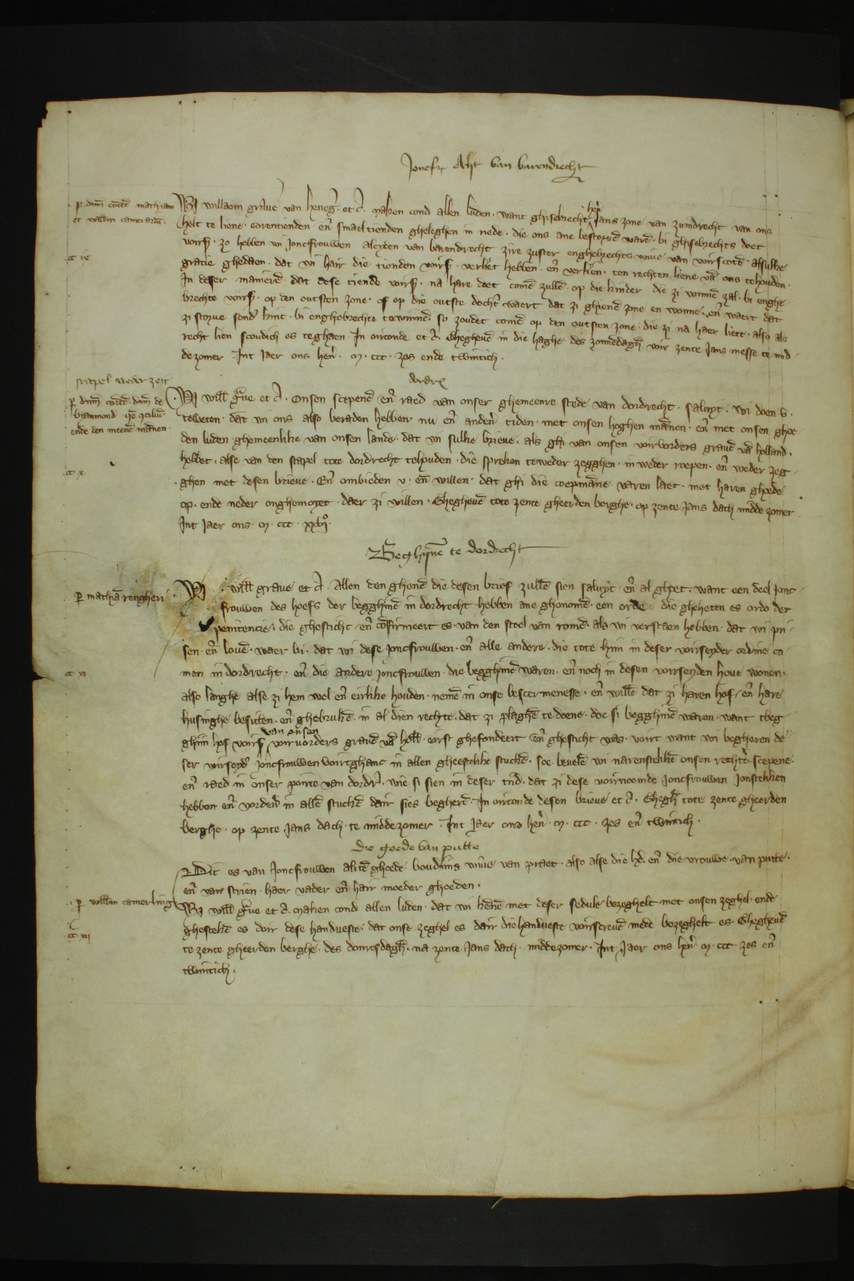 Joncfr Aht van barendrecht
p dnm cōitē mathiam
et willm camerariū
Wi willaem grave van heneg et c̄ maken cond allen luden want ghisebrecht her Jans zone van zundrecht van ons
helt te liene corentienden en smaeltienden gheleghen in rede die ons ane bestorven ware bi ghisebrechts doet
c ix
voirs zo hebben wi Joncfrouwen aleyden van barendrecht zire zuster enghebrechts wive van voirscoten alsulke
gracie ghedaen dat wi hair die tienden voirs verliet hebben en verlien ten rechten liene van ons te houden
In deser manieren dat dese tiende voirs na hare doet comen zullen op die kinder die zi winnen zal bi enghe
brechte voirs op den outsten zone of op die outste dochter waert dat zi ghienen zone en wonne en waert dat
zi storve sonder kint bi enghebrechte te winnen so zoudet comen op den outsten zone die zi na haer liete also als
recht lien sculdich es te ghaen In oirconde et c̄ Ghegheven in die haghe des zonnedaghes voir zente Jans messe te mid
de zomer Int Jaer ons heren m ccc zes ende twintich
stapel weder zeit
dordrec
p dnm cōitē dnm de
ende den meenē mānen
Wi will grave et c̄ Onsen scepenen en raed van onser ghemeenre stede van dordrecht saluyt wi doen v
te weten dat wi ons also beraden hebben nu en anderen tiden met onsen hoghen mannen en met onsen ghoe
den luden ghemeenlike van onsen lande dat wi sulke brieve als ghi van onsen voirvorders graven van holland
c x
hebbet alse van den stapel tote dordrecht te houden die spreken te weder zegghen in weder roepen en weder zeg
ghen met desen brieve En ombieden v en willen dat ghi die coepmanne varen laet met haren ghoede
op ende neder onghemoyet daer zi willen Ghegheven tote zente gheerden berghe op zente Jans dach midde zomer
Int Jaer ons m ccc xxvjo
Beghinē te dordrecht
p mathiā renghen
Wi will grave et c̄ Allen den ghenen die desen brief zullen sien saluyt en al ghoet want een deel Jonc
frouwen des hoefs der begghinen in dordrecht hebben ane ghenomen een orde die gheheten es ordo der
penitencien die ghesticht en confirmeert es van den stoel van romen als wi verstaen hebben dat wi pri
sen en loven waer bi dat wi dese joncfrouwen en alle andere die tote him in deser voirseyder ordine co
c xi
men in dordrecht en die andere joncfrouwen die begghinen waren en noch in desen voirseyden hove wonen
also langhe alse zi hem wel en eirlike houden nemen in onse beschermenesse en willen dat zi haren hof en hare
husinghe besitten en ghebruken in al dien rechte dat zi plaghen te doene doe si begghinen waren want tbeg
ghin hof voirs van onsen voirvorders graven van holl eerst ghefondeert en ghesticht was voirt want wi begheren de
ser voirseyder joncfrouwen voirtghanc in allen gheesteliken stucken soe bevelen wi nairensteliken onsen rechtre scepene
en raed in onser poirte van dordr wie si sien in deser tijd dat zi dese voirnoemde Joncfrouwen Jonsteliken
hebben en vorderen in allen stucken dair sies begheren In oirconde desen brieve et c̄ Ghegheven tote zente gheerden
berghe op zente Jans dach te midde zomer Int Jaer ons heren m ccc zes en twintich
Die goede van putte
Dit es van Joncfrouwen aliten ghoede boudwins wive van praet also alse die here en die vrouwe van putte
en van strien haer vader en hair moeder ghoeden
p willm camerling
Wi will grave et c̄ maken cond allen luden dat wi kennen met deser sedule bezeghelt met onsen zeghel ende
c xii
ghesteken es doir dese handveste dat onse zeghel es dair die handvest voirscreven mede bezeghelt es Ghegheven
te zente gheerden berghe des donresdaghes na zente Jans dach midde zomer Int Jaer ons heren m ccc zes en
twintich